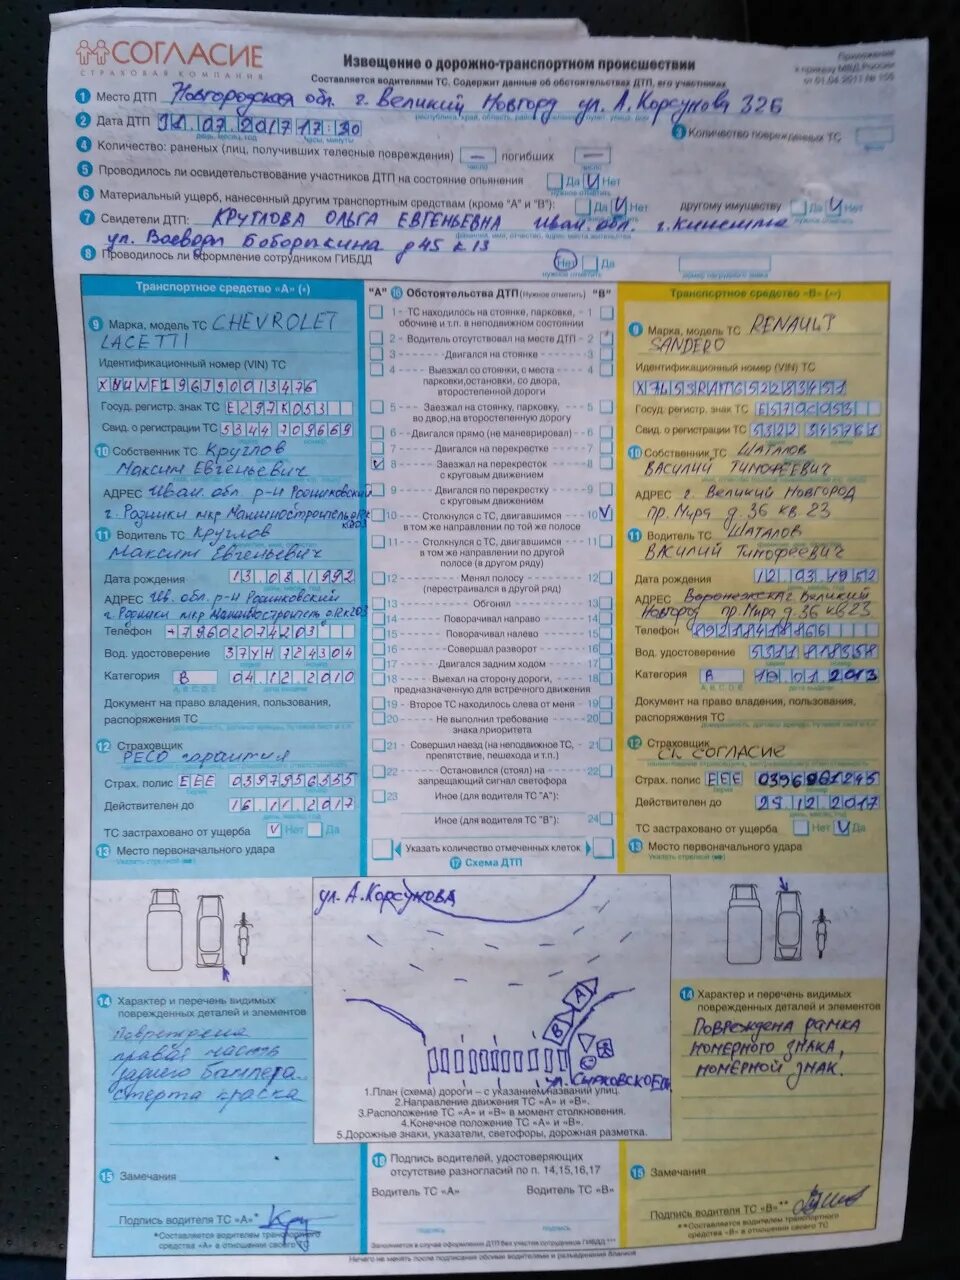 СОГЛАСИЕ
СТРАХОВАЯ КОМПАНИЯ
Извещение о дорожно-транспортном происшествии
Приложение
к приказу МВД России
от 01.04.2011 № 155
Составляется водителями ТС. Содержит данные об обстоятельствах ДТП, его участниках
1 Место ДТП Новгородская обл. г. Великий Новгород ул. А. Корсунова 32Б
2 Дата ДТП 31.07.2017 17:30
3 Количество поврежденных ТС
4 Количество: раненых (лиц, получивших телесные повреждения) — погибших —
5 Проводилось ли освидетельствование участников ДТП на состояние опьянения Да V Нет
6 Материальный ущерб, нанесенный другим транспортным средствам (кроме "А" и "В"): Да V Нет другому имуществу Да V Нет
7 Свидетели ДТП: КРУГЛОВА ОЛЬГА ЕВГЕНЬЕВНА Иван. обл. г. Кинешма
ул. Воеводы Боборыкина д 45 к 13
8 Проводилось ли оформление сотрудником ГИБДД Нет Да
номер нагрудного знака
Транспортное средство «А»
9 Марка, модель ТС CHEVROLET
LACETTI
Идентификационный номер (VIN) ТС
Госуд. регистр. знак ТС Е297К053
Свид. о регистрации ТС 5344 709669
10 Собственник ТС Круглов
Максим Евгеньевич
АДРЕС Иван. обл. р-н Родниковский
г. Родники мкр Машиностроитель
11 Водитель ТС Круглов
Максим Евгеньевич
Дата рождения 13.08.1992
АДРЕС Ив. обл. р-н Родниковский
г. Родники мкр Машиностроитель
Телефон +79602074203
Вод. удостоверение 37УН 724304
Категория В 04.12.2010
Документ на право владения, пользования,
распоряжения ТС
12 Страховщик
РЕСО гарантия
Страх. полис ЕЕЕ 0397956355
Действителен до 16.11.2017
ТС застраховано от ущерба V Нет Да
13 Место первоначального удара
Указать стрелкой
14 Характер и перечень видимых
поврежденных деталей и элементов
Повреждена
правая часть
заднего бампера
стерта краска
15 Замечания
Подпись водителя ТС «А»*
*Составляется водителем транспортного
средства «А» в отношении своего ТС
"А" 16 Обстоятельства ДТП (Нужное отметить) "В"
1 ТС находилось на стоянке, парковке, 1
обочине и т.п. в неподвижном состоянии
2 Водитель отсутствовал на месте ДТП 2
3 Двигался на стоянке 3
4 Выезжал со стоянки, с места 4
парковки, остановки, со двора,
второстепенной дороги
5 Заезжал на стоянку, парковку, 5
во двор, на второстепенную дорогу
6 Двигался прямо (не маневрировал) 6
7 Двигался на перекрестке 7
V 8 Заезжал на перекресток 8
с круговым движением
9 Двигался по перекрестку 9
с круговым движением
10 Столкнулся с ТС, двигавшимся 10 V
в том же направлении по той же полосе
11 Столкнулся с ТС, двигавшимся 11
в том же направлении по другой
полосе (в другом ряду)
12 Менял полосу 12
(перестраивался в другой ряд)
13 Обгонял 13
14 Поворачивал направо 14
15 Поворачивал налево 15
16 Совершал разворот 16
17 Двигался задним ходом 17
18 Выехал на сторону дороги, 18
предназначенную для встречного движения
19 Второе ТС находилось слева от меня 19
20 Не выполнил требование 20
знака приоритета
21 Совершил наезд (на неподвижное ТС, 21
препятствие, пешехода и т.п.)
22 Остановился (стоял) на 22
запрещающий сигнал светофора
23 Иное (для водителя ТС "А"):
Иное (для водителя ТС "В"): 24
Указать количество отмеченных клеток
17 Схема ДТП
ул. А. Корсунова
А
В
ул. Сырковское ш.
1.План (схема) дороги – с указанием названий улиц.
2.Направление движения ТС «А» и «В».
3.Расположение ТС «А» и «В» в момент столкновения.
4.Конечное положение ТС «А» и «В».
5.Дорожные знаки, указатели, светофоры, дорожная разметка.
18 Подпись водителей, удостоверяющих
отсутствие разногласий по п. 14,15,16,17
Водитель ТС «А» Водитель ТС «В»
подпись подпись
Заполняется в случае оформления ДТП без участия сотрудников ГИБДД ***
Ничего не менять после подписания обоими водителями и разъединения бланков
Транспортное средство «В»
9 Марка, модель ТС RENAULT
SANDERO
Идентификационный номер (VIN) ТС
Госуд. регистр. знак ТС
Свид. о регистрации ТС 5322 345761
10 Собственник ТС ШАТАЛОВ
ВАСИЛИЙ ТИМОФЕЕВИЧ
АДРЕС г. ВЕЛИКИЙ НОВГОРОД
пр. Мира д. 36 кв. 23
11 Водитель ТС ШАТАЛОВ
ВАСИЛИЙ ТИМОФЕЕВИЧ
Дата рождения 12.03.1952
АДРЕС г. Великий
Новгород пр. Мира д. 36 кв 23
Телефон 89218418866
Вод. удостоверение 5311 818358
Категория В 19.01.2013
Документ на право владения, пользования,
распоряжения ТС
12 Страховщик
СК СОГЛАСИЕ
Страх. полис ЕЕЕ 0396961245
Действителен до 29.12.2017
ТС застраховано от ущерба Нет V Да
13 Место первоначального удара
Указать стрелкой
14 Характер и перечень видимых
поврежденных деталей и элементов
ПОВРЕЖДЕНА РАМКА
НОМЕРНОГО ЗНАКА,
НОМЕРНОЙ ЗНАК.
15 Замечания
Подпись водителя ТС «В»**
**Составляется водителем транспортного
средства «В» в отношении своего ТС